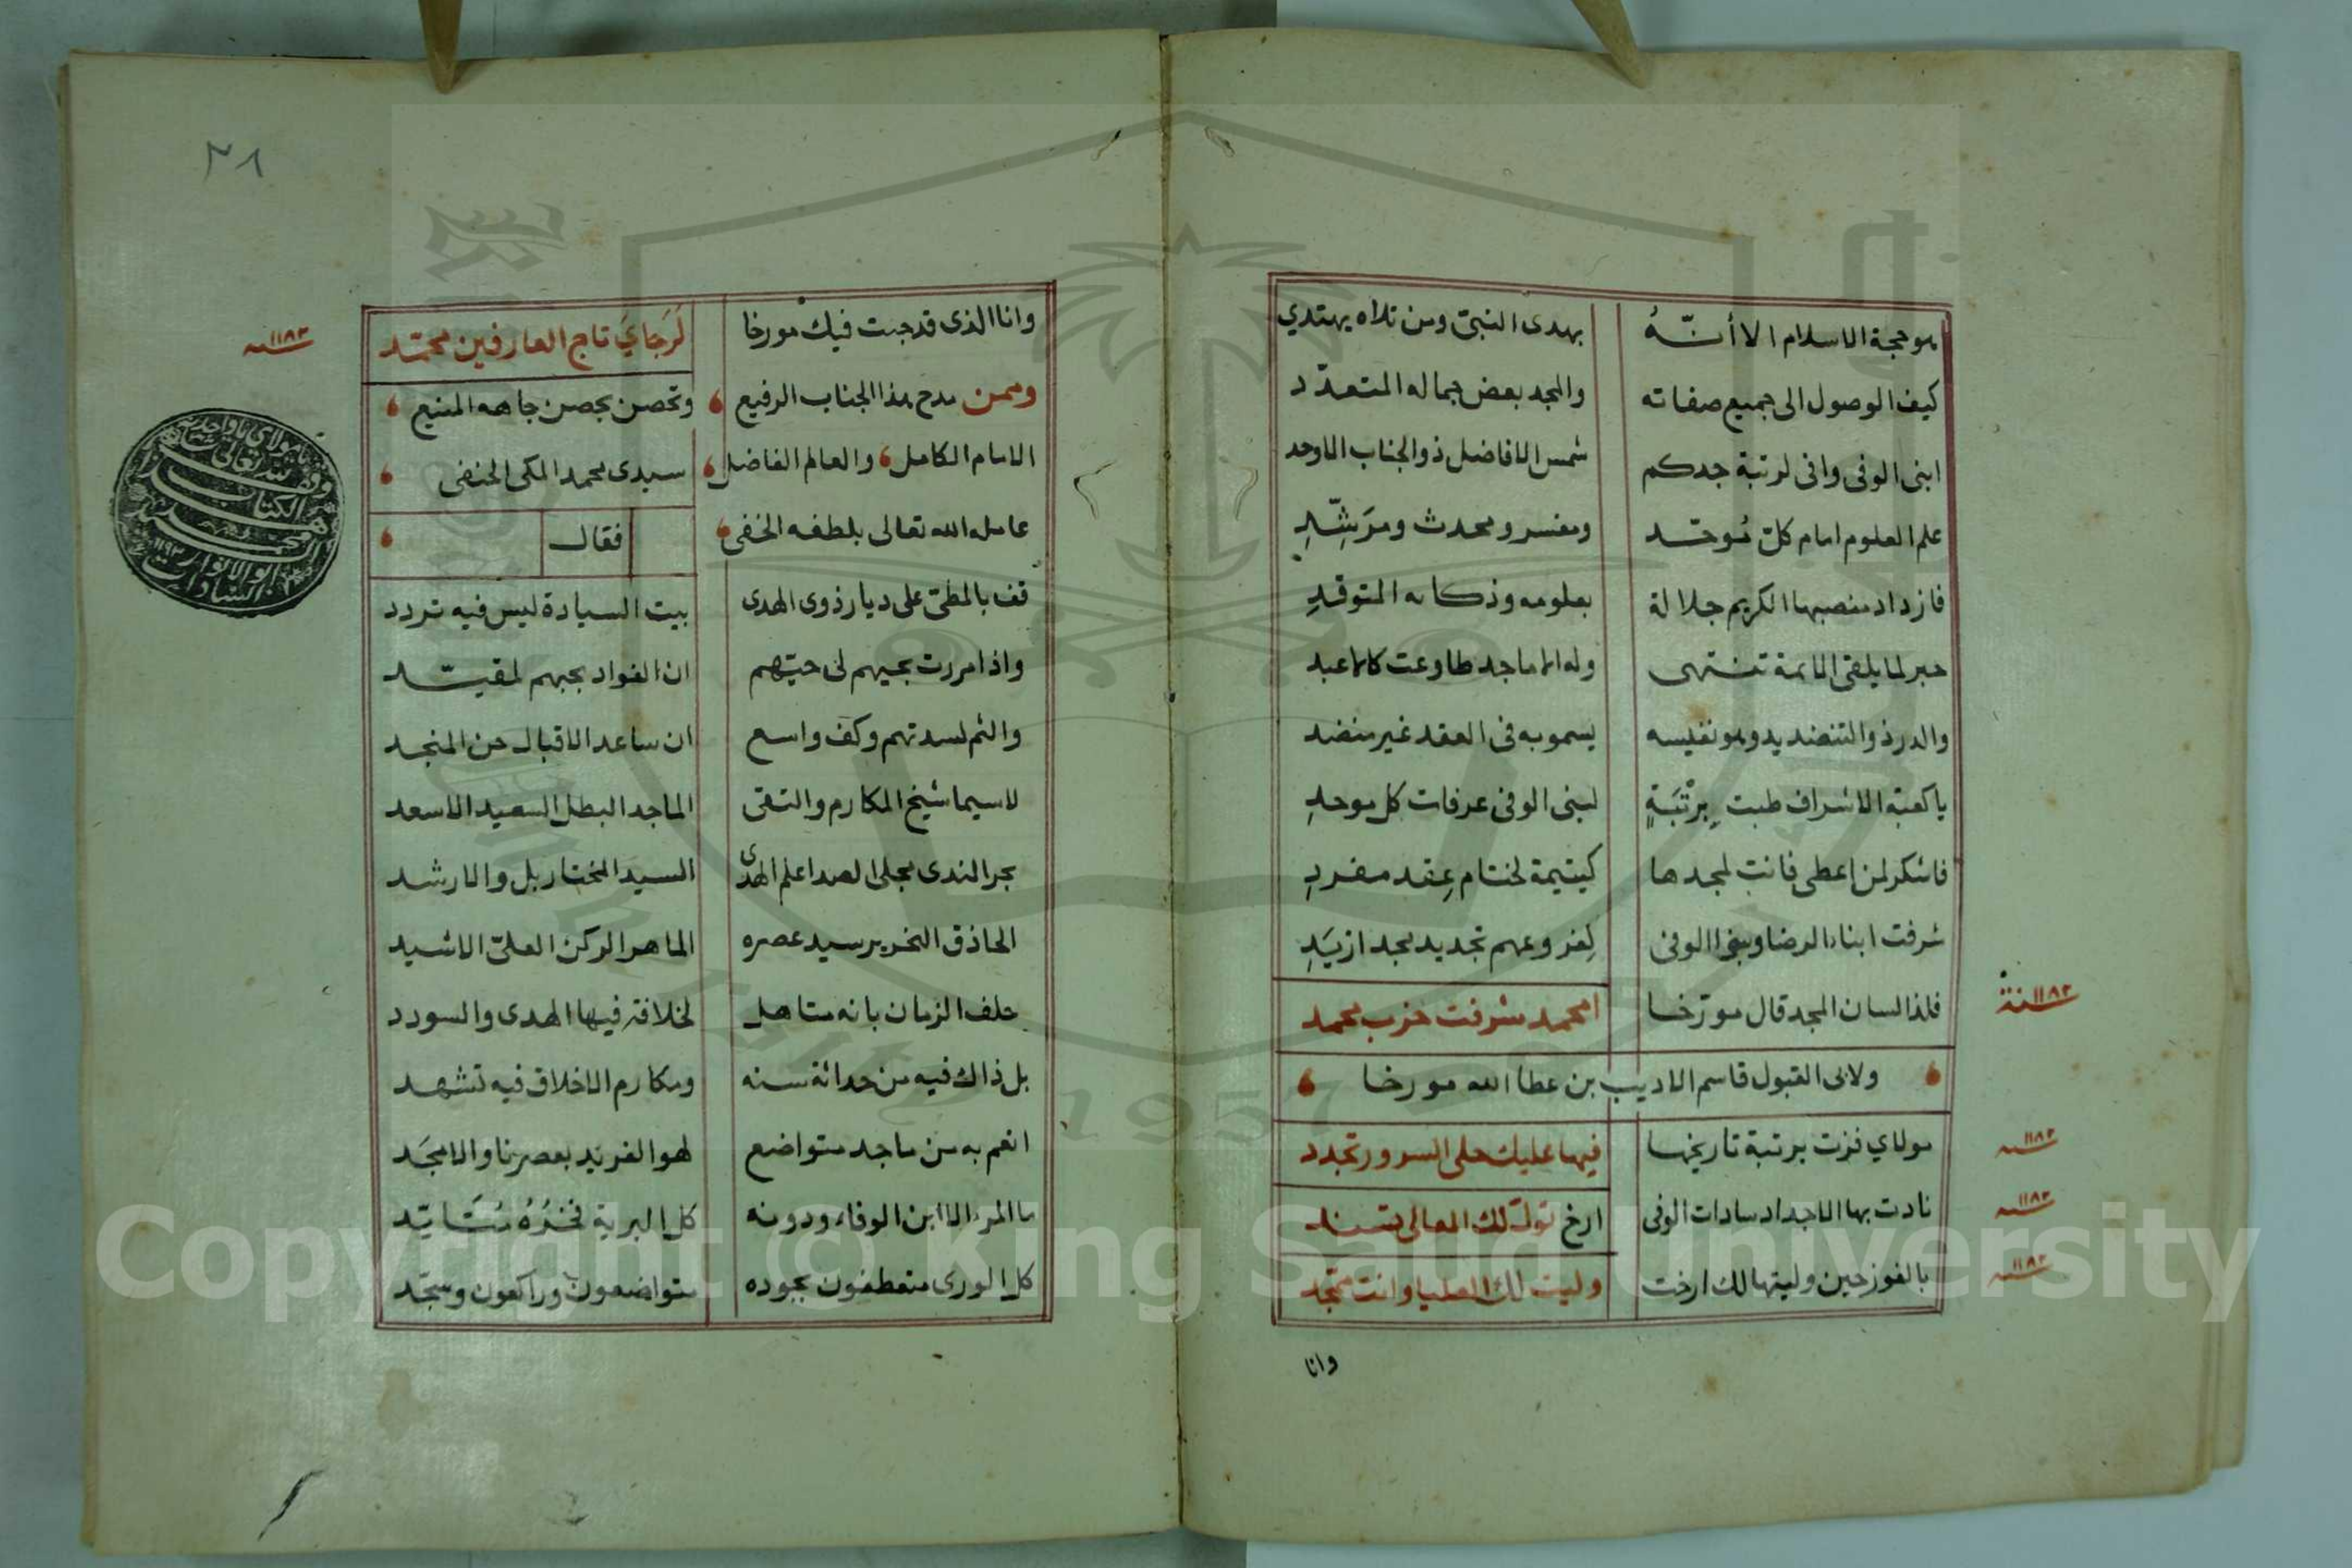 هو حجة الاسلام الا أنّهُ بهدى النبيّ ومن تلاه يهتدي
كيف الوصول الى جميع صفاته والمجد بعض جماله المتعدّد
ابنى الوفى وافى لرتبة جدكم شمس الافاضل ذو الجناب الاوحد
علم العلوم امام كلّ مُوحّد ومفسر ومحدث ومرَشِّدِ
فازداد منصبها الكريم جلالة بعلومه وذكائه المتوقدِ
حبر لما يلقى الائمة تنتهى وله الاماجد طاوعت كالاعبد
والدر ذو التنضيد يدو هو نفيسه يسمو به فى العقد غير منضد
يا كعبة الاشراف طبت بِرتْبَةٍ لبنى الوفى عرفات كل موحدِ
فاشكر لمن اعطى فانت لمجدها كيتيمة لختام عِقد مفردِ
شرفت ابناء الرضا وبنى الوفى لِفروعهم تجديد مجد ازيَدِ
فلذا لسان المجد قال مورّخا امحمد شرفت حزب محمد
سنة ١١٨٢
ولابى القبول قاسم الاديب بن عطا الله مورخا
مولاي فزت برتبة تاريخها فيها عليك حلى السرور تجدد
سنة ١١٨٢
نادت بها الاجداد سادات الوفى ارخ تولّ لك المعالى تسند
سنة ١١٨٢
بالفوز حين وليتها لك ارخت وليت لك العليا وانت ممجّد
سنة ١١٨٢
وانا
٣٨
وانا الذى قد جبت فيك مورخا لَرَجايَ تاج العارفين محمّد
سنة ١١٨٢
وممن مدح هذا الجناب الرفيع وتحصن بحصن جاهه المنيع
الامام الكامل والعالم الفاضل سيدى محمد المكى الحنفى
عامله الله تعالى بلطفه الخفى فقال
قف بالمطىّ على ديار ذوى الهدى بيت السيادة ليس فيه تردد
واذا مررت بحيهم لى حيّهم ان الفواد بحبهم لمقيّد
والثم لسدتهم وكف واسع ان ساعد الاقبال من المنجد
لاسيما شيخ المكارم والتقى الماجد البطل السعيد الاسعد
بحر الندى مجلى الصدا علم الهدى السيد المختار بل والارشد
الحاذق النحرير سيد عصره الماهر الركن العلىّ الاشيد
حلف الزمان بانه متاهل لخلافة فيها الهدى والسودد
بل ذاك فيه من حداثة سنه ومكارم الاخلاق فيه تشهد
انعم به من ماجد متواضع لهو الفريد بعصرنا والامجَد
ما المرء الا ابن الوفاء ودونه كل البرية فخرُهُ
كل الورى متعطفون بجوده متواضعون وراكعون وسجّد
يا مولاى يا واحد
وقف لله تعالى
الكتاب
محمد
ابو الانوار
السادات
١١٩٣
Copyright © King Saud University
1957